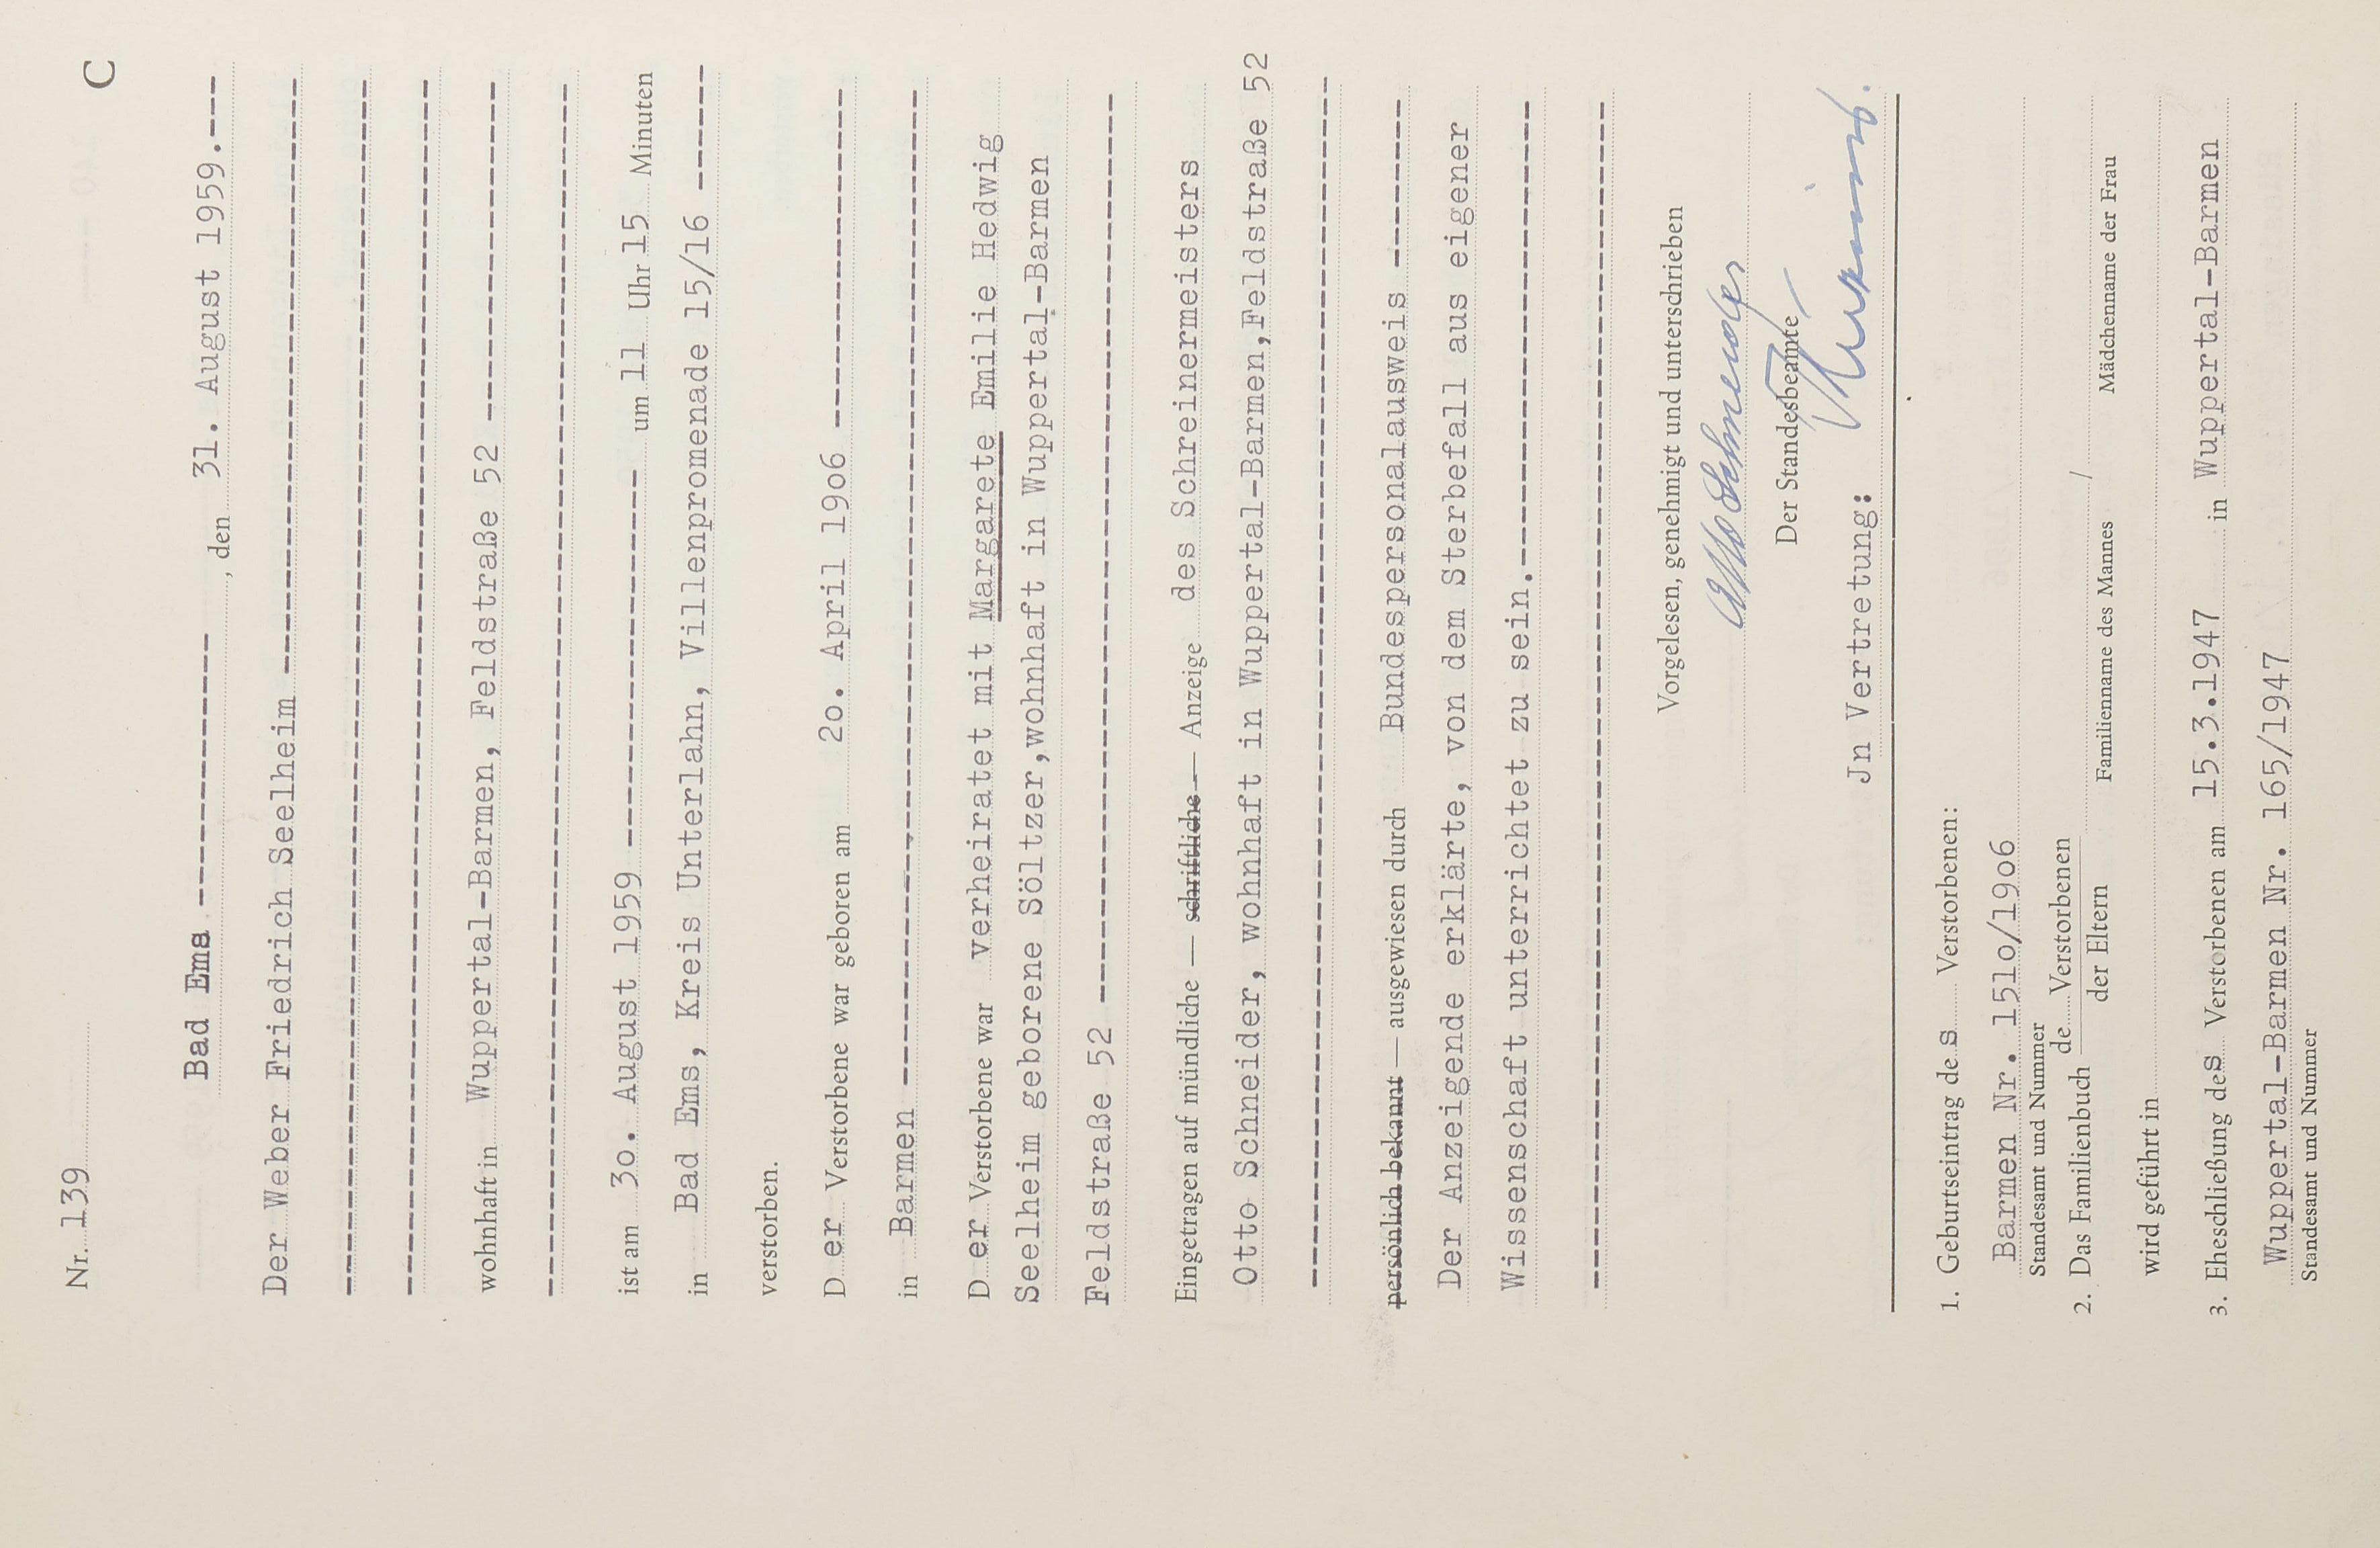 C
Nr. 139
Bad Ems ---------------, den 31. August 1959.---
Der Weber Friedrich Seelheim ----------------------------
------------------------------------------------------------
------------------------------------------------------------
wohnhaft in Wuppertal-Barmen, Feldstraße 52 ----------------
------------------------------------------------------------
ist am 3o. August 1959 ------------------- um 11 Uhr 15 Minuten
in Bad Ems, Kreis Unterlahn, Villenpromenade 15/16 ------
verstorben.
D er Verstorbene war geboren am 2o. April 19o6 ----------------
in Barmen --------------------------------------------------
D er Verstorbene war verheiratet mit Margarete Emilie Hedwig
Seelheim geborene Söltzer,wohnhaft in Wuppertal-Barmen
Feldstraße 52 ---------------------------------------------
Eingetragen auf mündliche — schriftliche — Anzeige des Schreinermeisters
Otto Schneider, wohnhaft in Wuppertal-Barmen,Feldstraße 52
------------------------------------------------------------
persönlich bekannt — ausgewiesen durch Bundespersonalausweis --------
Der Anzeigende erklärte, von dem Sterbefall aus eigener
Wissenschaft unterrichtet zu sein.-----------------------
------------------------------------------------------------
Vorgelesen, genehmigt und unterschrieben
Otto Schneider
Der Standesbeamte
Jn Vertretung:
1. Geburtseintrag de s Verstorbenen:
Barmen Nr. 151o/19o6
Standesamt und Nummer
2. Das Familienbuch de Verstorbenen /
der Eltern Familienname des Mannes Mädchenname der Frau
wird geführt in
3. Eheschließung des Verstorbenen am 15.3.1947 in Wuppertal-Barmen
Wuppertal-Barmen Nr. 165/1947
Standesamt und Nummer